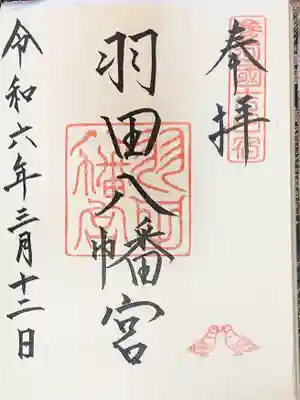 奉拝
羽田八幡宮
令和六年三月十二日